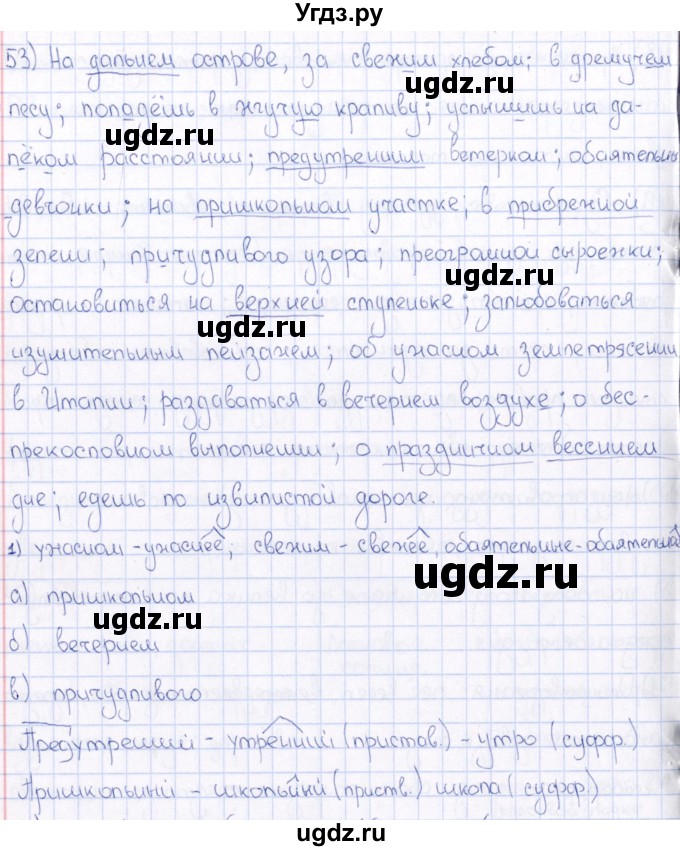 Угдз.ру
53) На дальнем острове, за свежим хлебом; в дремучем
лесу; попадёшь в жгучую крапиву; услышишь на да-
лёком расстоянии; предутренним ветерком; обаятельны
девчонки; на пришкольном участке; в прибрежной
зелени; причудливого узора; преогромной сыроежки;
остановиться на верхней ступеньке; залюбоваться
изумительным пейзажем; об ужасном землетрясении
в Италии; раздаваться в вечернем воздухе; о бес-
прекословном выполнении; о праздничном весеннем
дне; едешь по извилистой дороге.
1) ужасном - ужаснее; свежим - свежее, обаятельные -
а) пришкольном
б) вечернем
в) причудливого
Предутренний - утренний (пристав.) - утро (суфф.)
Пришкольный - школьный (приств.) школа (суфф.)
ugdz.ru
ugdz.ru
ugdz.ru
ugdz.ru
ugdz.ru
ugdz.ru
ugdz.ru
ugdz.ru
ugdz.ru
ugdz.ru